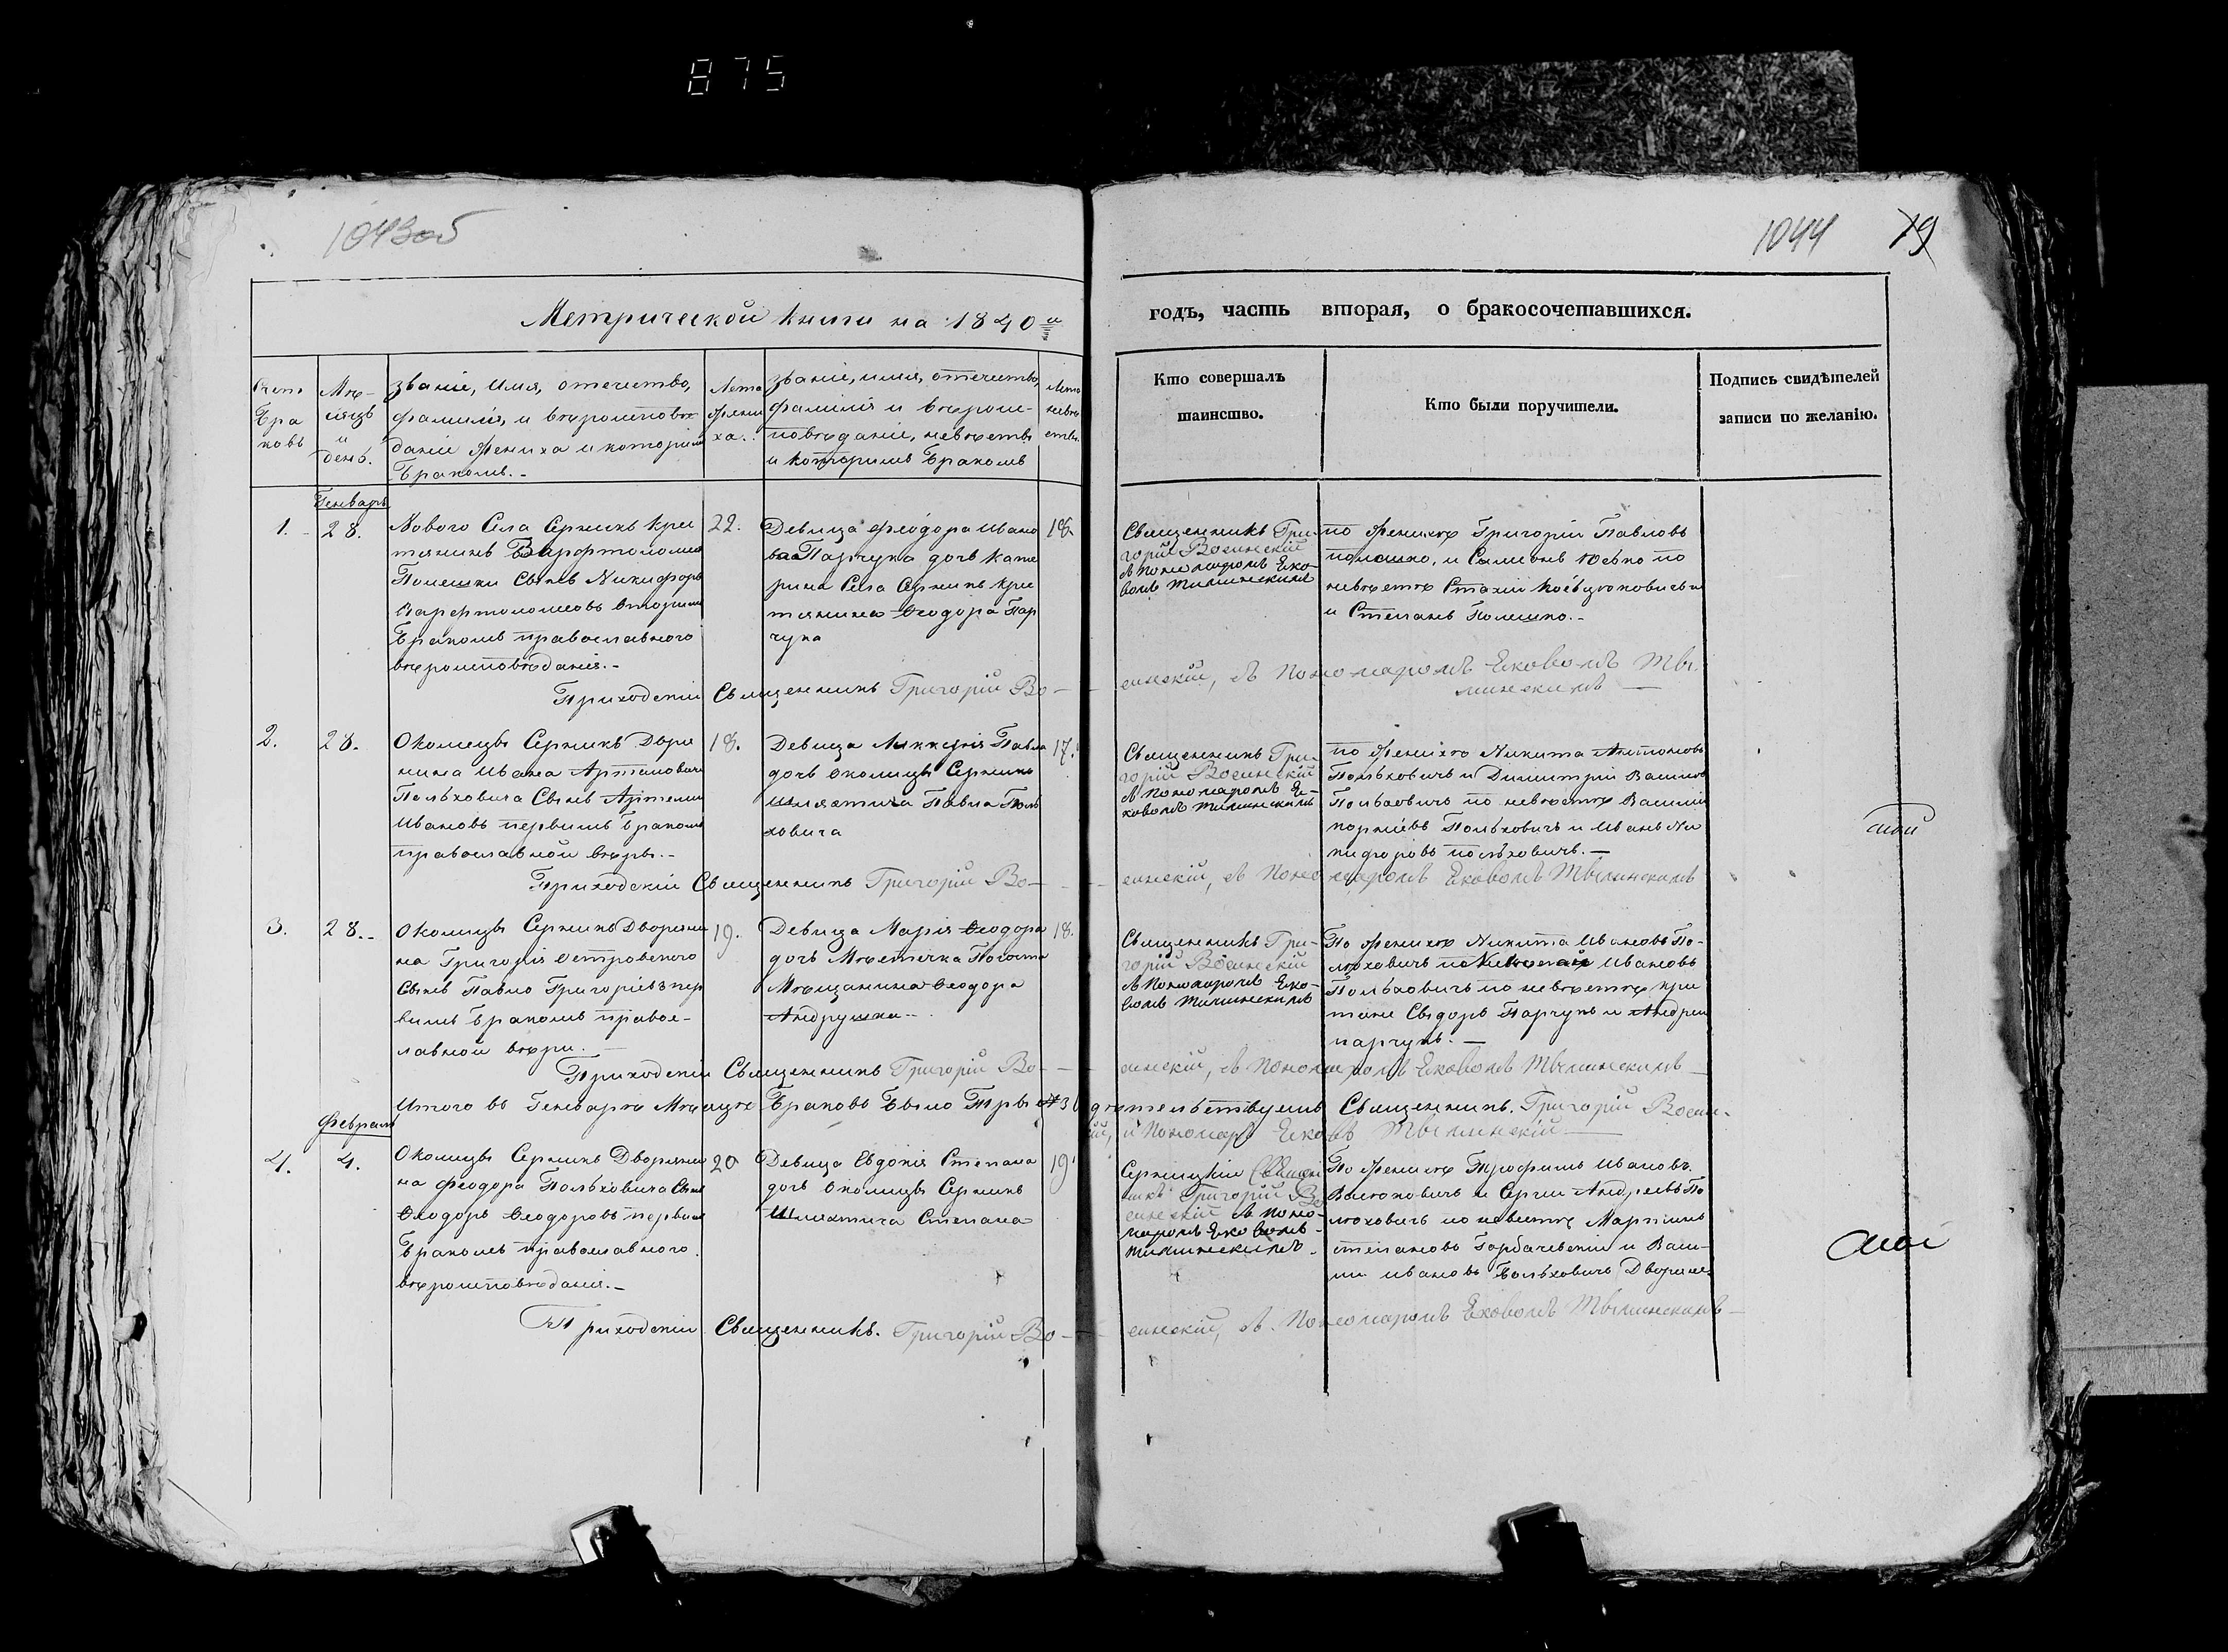 875
1043об
1044 79
Метрической книги на 1840й
годъ, часть вторая, о бракосочетавшихся.
Счетъ Браковъ
Мѣсяцъ и день.
Званіе, имя, отечество,
фамилія, и вѣроисповѣ
даніе жениха и которимъ
Бракомъ.-
Лета жениха.
Званіе, имя, отечество,
фамилія и вѣроис-
повѣданіе, невѣсты
и которимъ Бракомъ
Лета невѣсты.
Кто совершалъ
таинство.
Кто были поручители.
Подпись свидѣтелей
записи по желанію.
Генварь
1.
28.
Нового Села Серникъ крес
тянинъ Варфтоломея
Полешки Сынъ Никифоръ
Варфтоломеовъ вторимъ
Бракомъ православного
вѣроисповѣданія.-
22.
Девица Феодора Ивано
ва Парчука дочь Кате
рина Села Серникъ крес
тянина Ѳеодора Пар
чука
18.
Священникъ Гри-
горій Восинскій
съ пономаромъ Яко-
вомъ Тылинскимъ
по женихѣ Григорій Павловъ
полешко, и Симеонъ Юсько по
невѣстѣ
и Степанъ Полешко.-
Приходскій Священникъ Григорій Во-
синскій, съ Пономаромъ Яковомъ Ты
линскимъ —
2.
28.
Околицы Серникъ Двря
нина Ивана Артемовича
Полховича Сынъ Артемій
Ивановъ первимъ Бракомъ
православной вѣры.-
18.
Девица Павла
дочь околицы Серникъ
Шляхтича Павла Поль
ховича
17.
Священникъ Гри-
горій Восинскій
съ Пономаромъ Я-
ковомъ Тылинскимъ
по женихѣ Никита Антоновъ
Польховичъ и Димитрій Василіовъ
Польховичъ по невѣстѣ Василій
корнѣевъ Польховичъ и Иванъ Ни
кифоровъ польховичъ.—
Приходскій Священникъ Григорій Во-
синскій, съ Пономаромъ Яковомъ Тылинскимъ
3.
28.-
Околицы Серникъ Дворяни
на Григорія Островского
Сынъ Павло Григоріевъ пер
вимъ Бракомъ правос-
лавной вѣри.—
19.
Девица Марія Ѳеодора
дочь Мѣстечка Погоста
Мѣщанина Ѳеодора
Андрушка-
18.
Священникъ Гри-
горій Восинскій
съ Пономаромъ Яко-
вомъ Тылинскимъ
По женихѣ Никита Ивановъ По-
люховичъ Ивановъ
Польховичъ по невѣстѣ крес
тяне Сыдоръ Парчукъ и Андрей
парчукъ.—
Приходскій Священникъ Григорій Во-
синскій, съ Пономаромъ Яковомъ Тылинскимъ—
Итого въ Генварѣ Мѣсяцѣ Браковъ Было Тры №3 Священникъ. Григорій Восин-
кій, и Пономарь Яковъ Тылинскій—
Февраль
4.
4.
Околицы Серникъ Дворяни
на Феодора Польховича Сынъ
Ѳеодоръ Ѳеодоровъ первимъ
Бракомъ православного
вѣроисповѣданія.-
20
Девица Евдокія Степана
дочь околицы Серникъ
Шляхтича Степана
19
Серницкій Священ
никъ Григорій Во
синскій съ Поно-
маромъ Яковомъ
Тылинскимъ.
По женихѣ Трофимъ Ивановъ
Васюховичъ и Сергій Андреевъ По
люховичъ по невестѣ Мартинъ
степановъ Горбачевскій и Васи-
лій ивановъ Польховичъ Дворяне
Приходскій Священникъ. Григорій Во-
синскій, съ Пономаромъ Яковомъ Тылинскимъ—